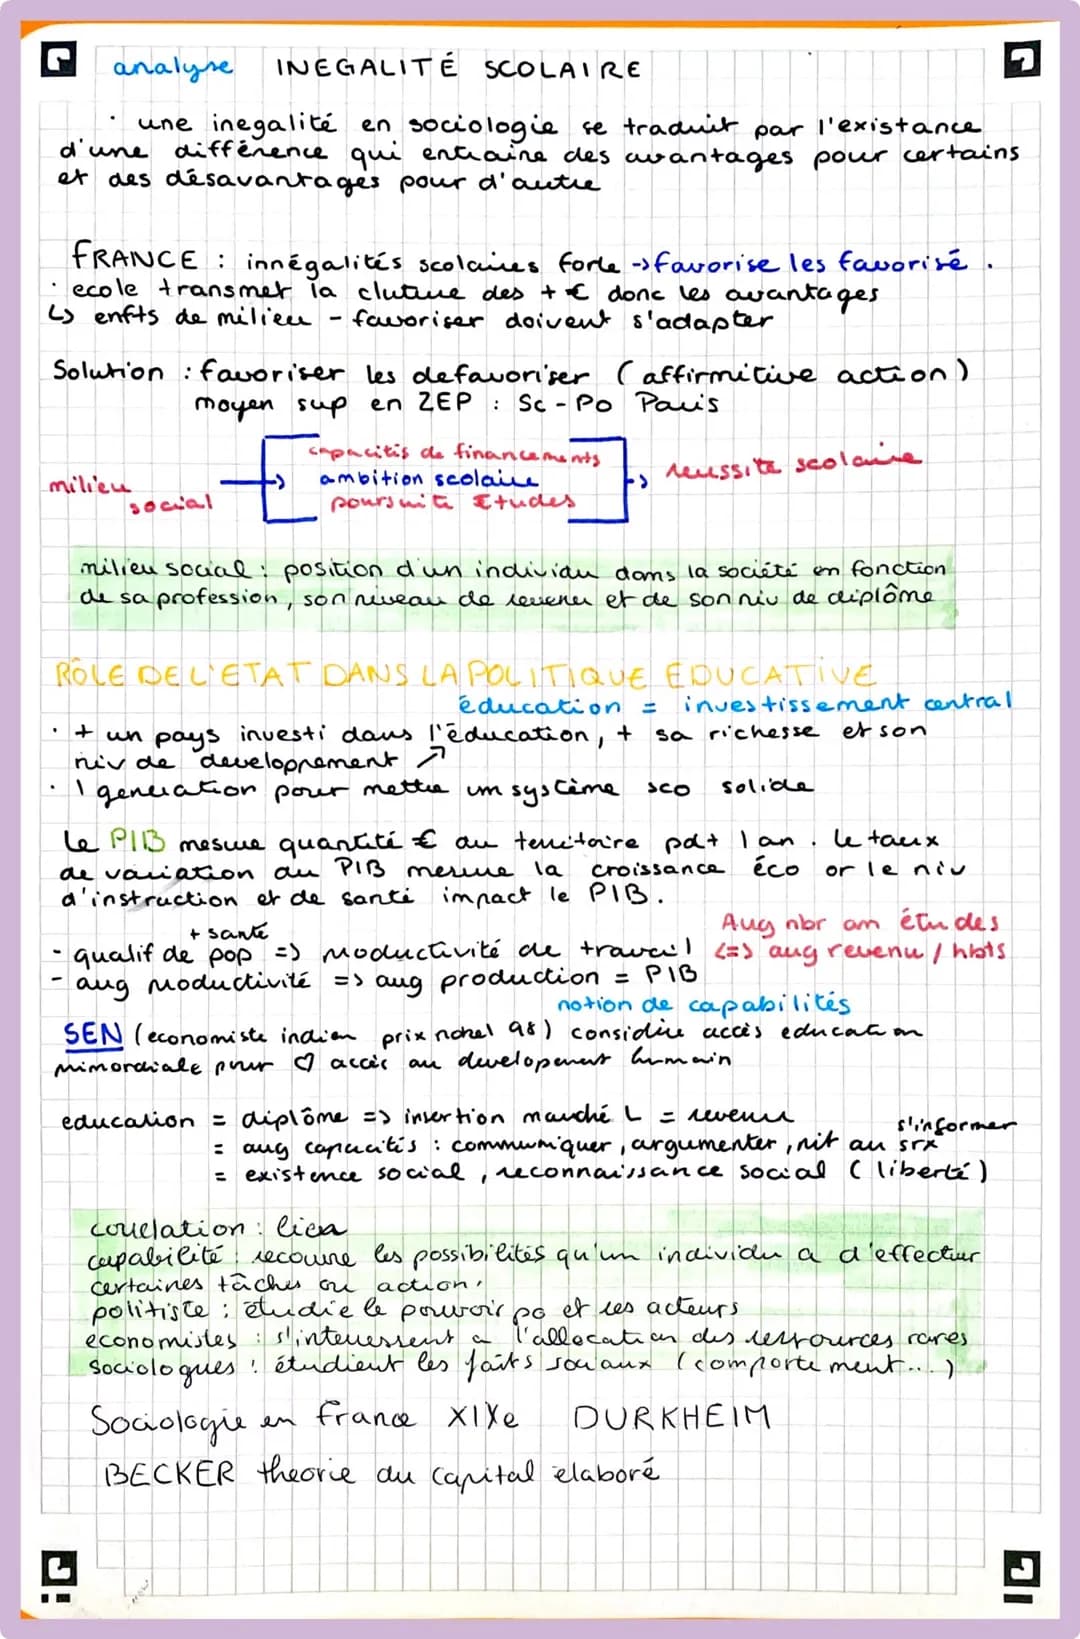 analyse INEGALITÉ SCOLAIRE
· une inegalité en sociologie se traduit par l'existance
d'une différence qui entraine des avantages pour certains
et des désavantages pour d'autre
FRANCE : innégalités scolaires forte -> favorise les favorisé .
· ecole transmet la cluture des + € donc les avantages
↳ enfts de milieu - favoriser doivent s'adapter
Solution : favoriser les defavoriser (affirmitive action)
moyen sup en ZEP : Sc-Po Paris
capacitis de financements
ambition scolaire
poursuite Etudes
milieu social
-> reussite scolaire
milieu social : position d'un individu dans la société en fonction
de sa profession, son niveau de revenu et de son niv de diplôme
RÔLE DE L'ETAT DANS LA POLITIQUE EDUCATIVE
éducation = investissement central
· + un pays investi dans l'éducation, + sa richesse et son
niv de developpement ↗
· 1 generation pour mettre um système sco solide
Le PIB mesure quantité € au territoire pdt 1 an . Le taux
de variation du PIB mesure la croissance éco or le niv
d'instruction et de santé impact le PIB.
+ santé
Aug nbr an études
- qualif de pop => productivité de travail <=> aug revenu / hbts
- aug productivité => aug production = PIB
notion de capabilités
SEN (economiste indien prix nobel 98) considère accès education
primordiale pour ♡ accèc au developement humain
education = diplôme => insertion marché L = revenu
s'informer
= aug capacités : communiquer, argumenter, au srx
= existence social, reconnaissance social (liberté)
correlation : lien
capabilité : recouvre les possibilités qu'un individu a d'effectuer
certaines tâches ou action.
politiste : étudie le pouvoir po et ses acteurs
economistes : s'interressent a l'allocation des ressources rares
sociologues : étudient les faits sociaux (comportement...)
Sociologie en france XIXe DURKHEIM
BECKER theorie du capital elaboré